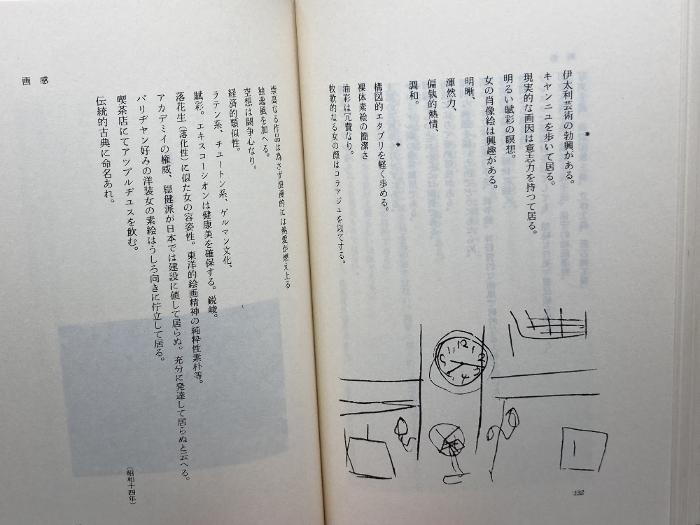 伊太利芸術の勃興がある。
キャンニュを歩いて居る。
現実的な画因は意志力を持つて居る。
明るい賦彩の瞑想。
女の肖像絵は興趣がある。
明晰、
渾然力、
偏執的熱情、
調和。
構図的エタブリを軽く歩める。
裸体素絵の簡潔さ
油彩は冗費なり。
牧歌的なる女の顔はコラアジュを以てする。
12
1
2
4
132
崇高なる作品は為さず浪漫的には熱愛が燃え上る
独逸風を加へる。
空想は闘争心なり。
経済的類似性。
ラテン系、チュートン系、ゲルマン文化、
賦彩。エキスコーシオンは健康美を確保する。鋭峻。
落花生（落花性）に似た女の容姿性。東洋的絵画精神の純粋性素朴等。
アカデミイの権威、穏健派が日本では建設に値して居らぬ。充分に発達して居らぬと云へる。
パリヂヤン好みの洋装女の素絵はうしろ向きに佇立して居る。
喫茶店にてアップルヂュスを飲む。
伝統的古典に命名あれ。
（昭和十四年）
画感